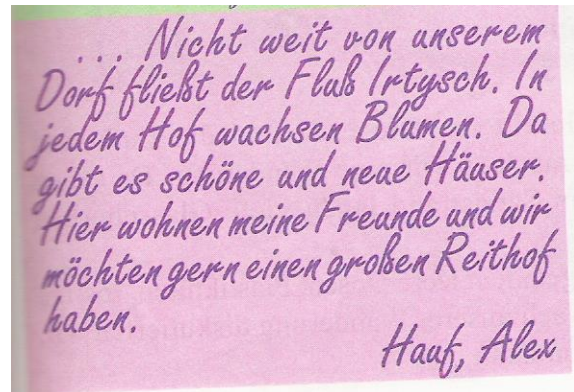 . . . Nicht weit von unserem
Dorf fließt der Fluß Irtysch. In
jedem Hof wachsen Blumen. Da
gibt es schöne und neue Häuser.
Hier wohnen meine Freunde und wir
möchten gern einen großen Reithof
haben.
Hauf, Alex